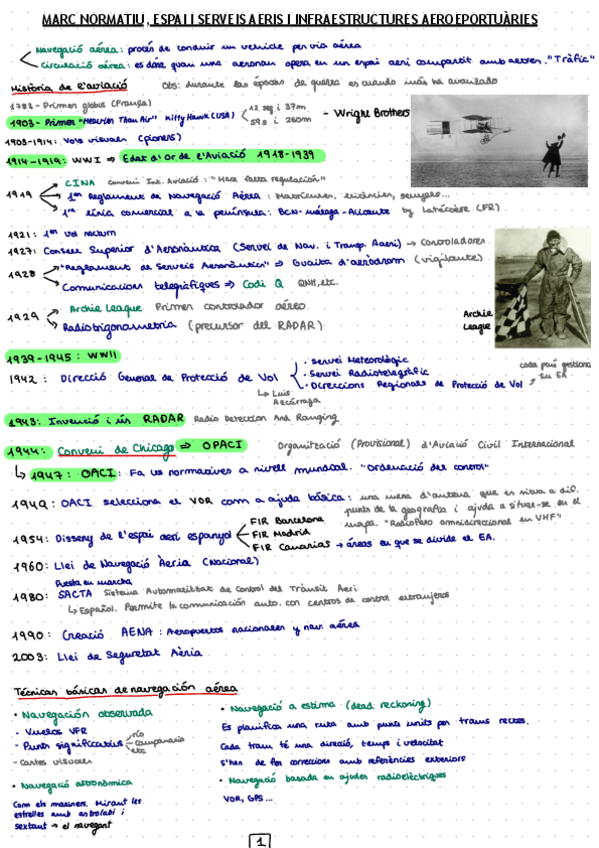 MARC NORMATIU, ESPAI I SERVEIS AERIS I INFRAESTRUCTURES AEROEPORTUÀRIES
Navegació aérea: procés de conduir un vehicle per via aérea
Circulació aérea: es dóna quan una aeronau opera en un espai aeri compartit amb altres. "Tràfic"
Història de l'aviació
Obs: durante las épocas de guerra es cuando más ha avanzado
1783 - Primer globus (França)
1903 - Primer "Heavier Than Air" Kitty Hawk (USA)
12 seg i 37m
59 s i 260m
- Wright Brothers
1903-1914: Vols visuals (pioners)
1914-1919: WWI ⇒ Edat d'Or de l'Aviació 1918-1939
1919
CINA Conveni Int. Aviació: "Hace falta regulación"
1er Reglament de Navegació Aèrea: Matrícules, llicències, senyals...
1ª línia comercial a la península: BCN-Málaga-Alicante by Latécoère (FR)
1921: 1er vol nocturn
1927: Consell Superior d'Aeronàutica (Servei de Nav. i Transp. Aeri) → controladores
1928
"Reglament de Serveis Aeronàutics" ⇒ Guaita d'aeròdrom (vigilante)
Comunicacions telegràfiques ⇒ Codi Q QNH, etc.
1929
Archie League Primer controlador aéreo
Radiotrigonometria (precursor del RADAR)
Archie
League
1939-1945: WWII
1942: Direcció General de Protecció de Vol
→ Luis
Azcárraga
· Servei Meteorològic
· Servei Radiotelegràfic
· Direccions Regionals de Protecció de Vol
cada país gestiona
su EA
1943: Invenció i ús RADAR Radio Detection And Ranging
1944: Conveni de Chicago ⇒ OPACI Organització (Provisional) d'Aviació Civil Internacional
↳ 1947: OACI: Fa les normatives a nivell mundial. "Ordenació del control"
1949: OACI selecciona el VOR com a ajuda bàsica: una mena d'antena que es situa a dif.
punts de la geografia i ajuda a situar-se en el
mapa. "Radiofaro omnidireccional en VHF"
1954: Disseny de l'espai aeri espanyol
FIR Barcelona
FIR Madrid
FIR Canarias → áreas en que se divide el EA.
1960: Llei de Navegació Aèria (Nacional)
Puesta en marcha
1980: SACTA Sistema Automatitzat de Control del Trànsit Aeri
↳ Español. Permite la comunicación auto. con centros de control extranjeros
1990: Creació AENA: Aeropuertos nacionales y nav. aérea
2003: Llei de Seguretat Aèria
Técnicas básicas de navegación aérea
• Navegación observada
- Vuelos VFR
- Punts significatius
río
campanario
etc
- Cartes visuales
• Navegació astronòmica
Com els mariners. Mirant les
estrelles amb astrolabi i
sextant → el navegant
• Navegació a estima (dead reckoning)
Es planifica una ruta amb punts units per trams rectes.
Cada tram té una direcció, temps i velocitat
S'han de fer correccions amb referències exteriors
• Navegació basada en ajudes radioelèctriques
VOR, GPS...
1